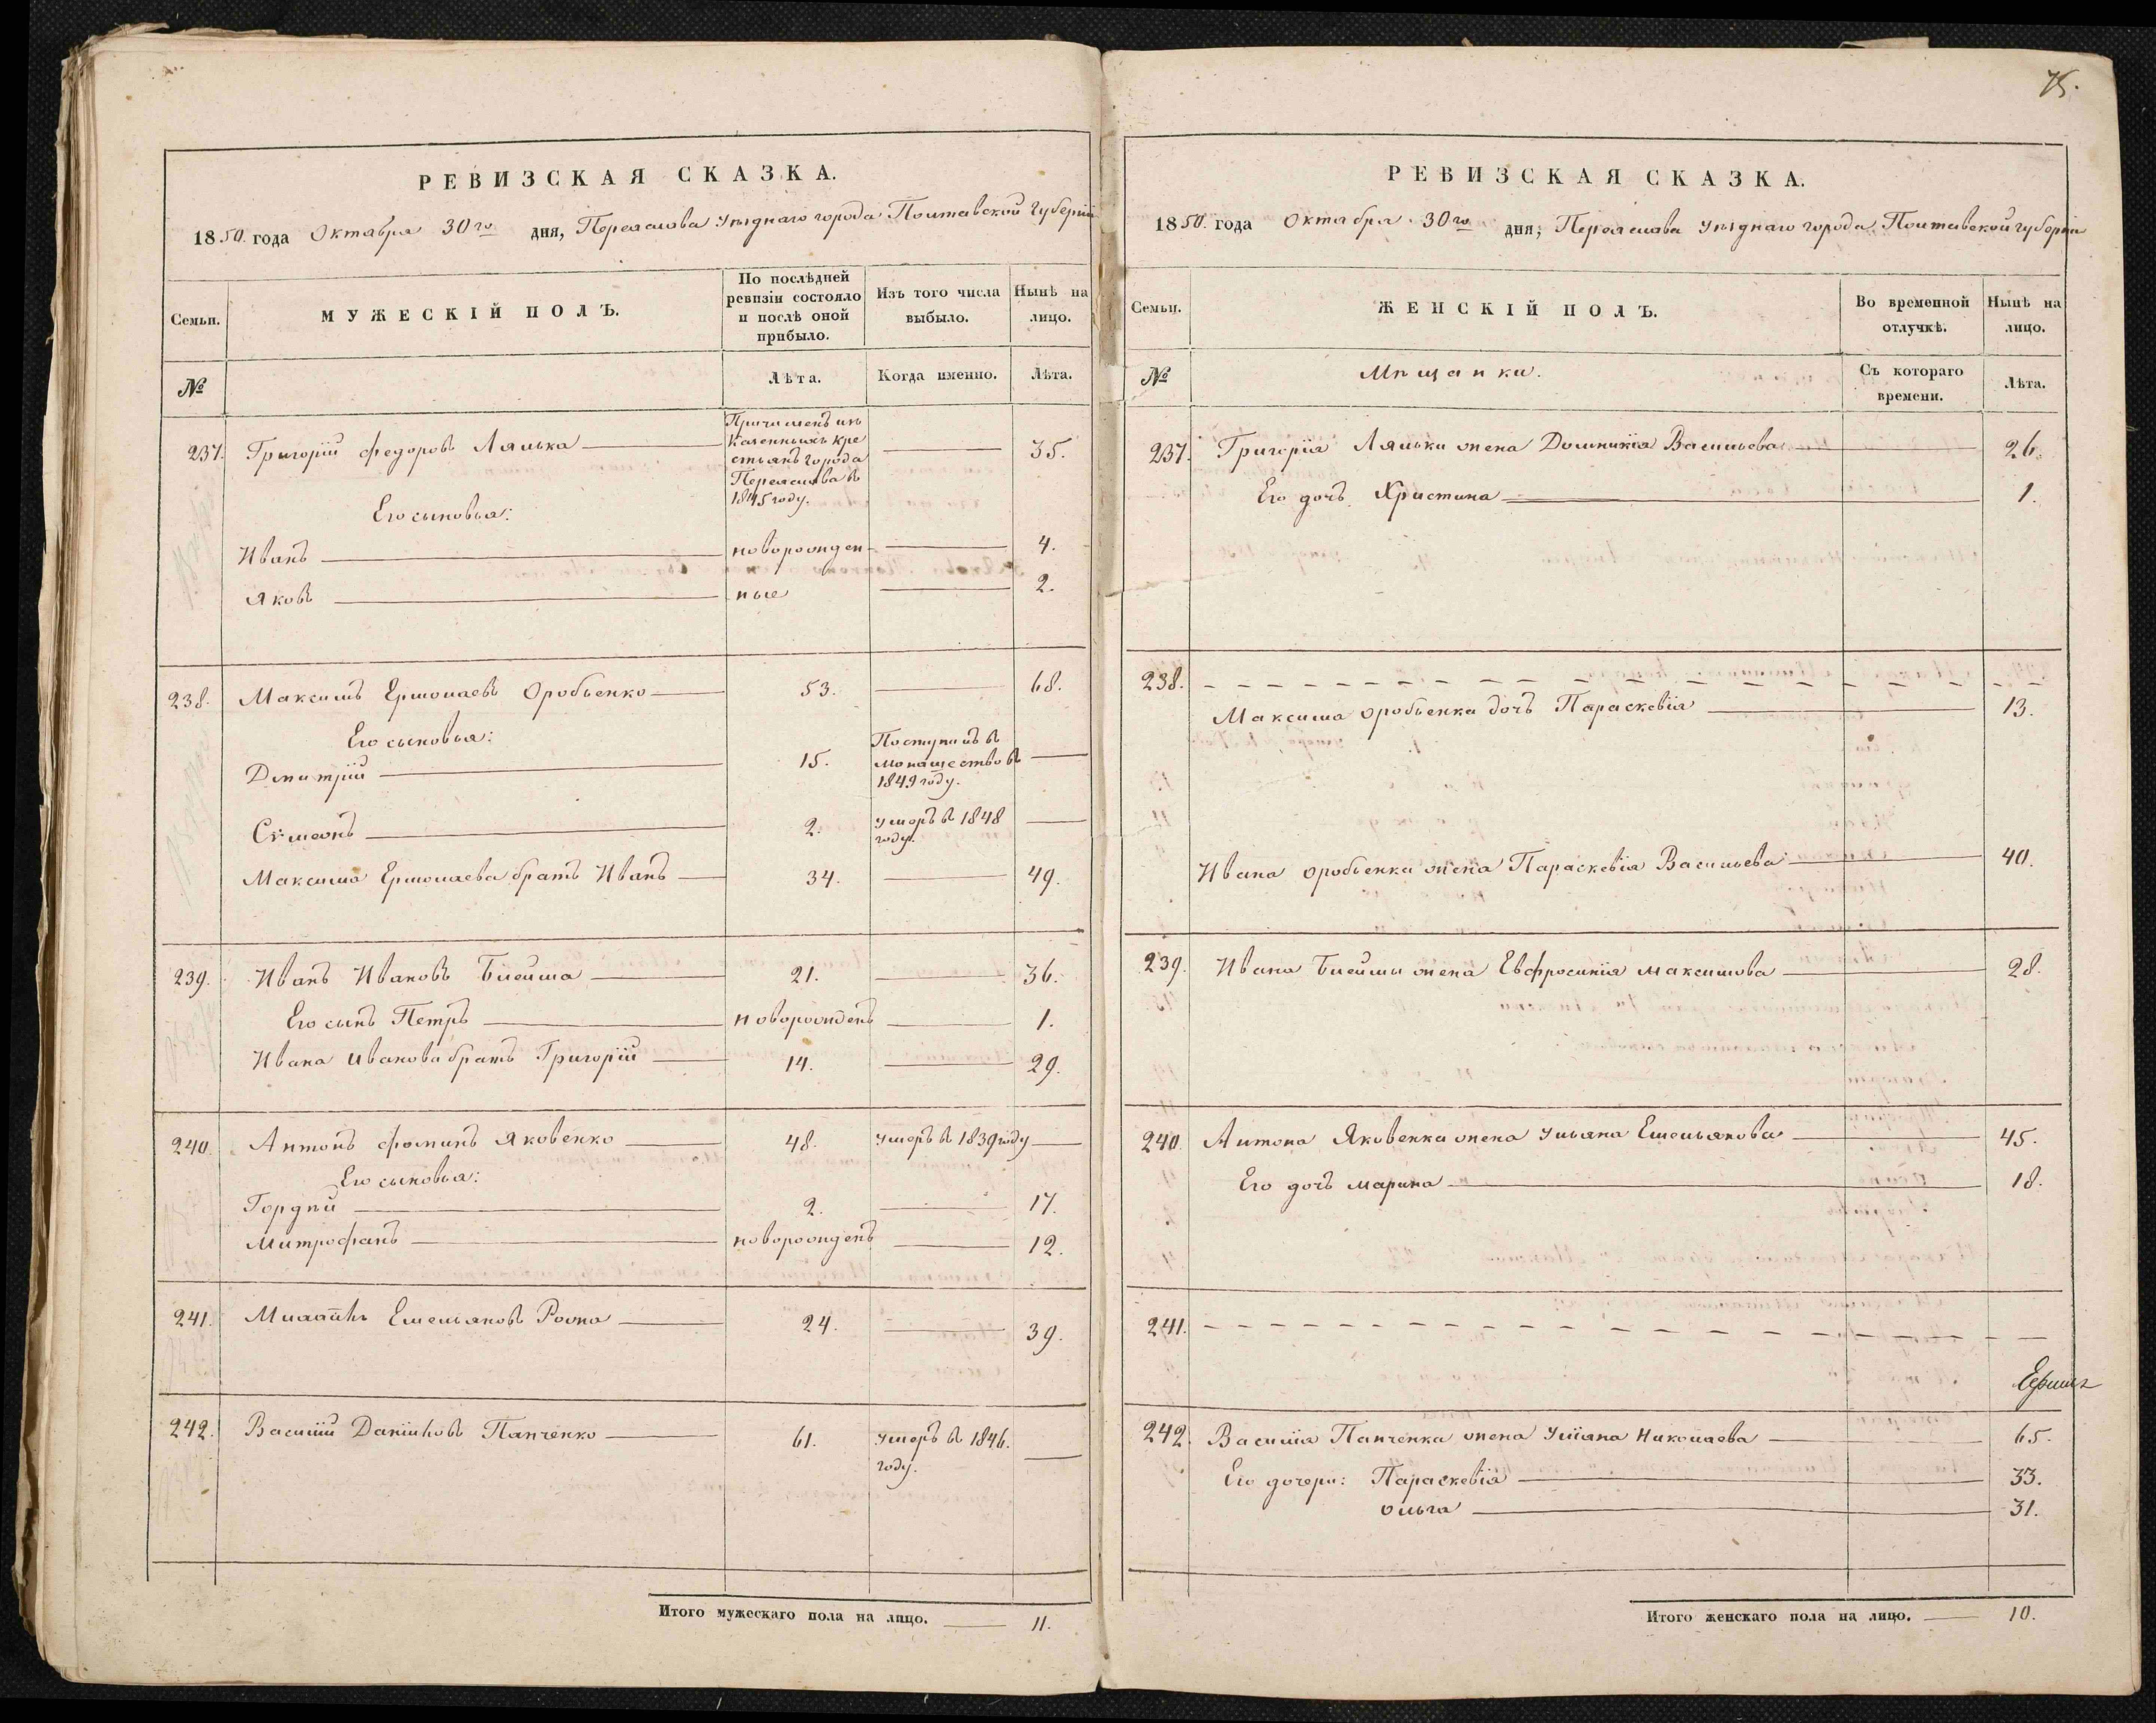 РЕВИЗСКАЯ СКАЗКА.
1850. года Октября 30го дня, Переяслова Уѣзднаго города Полтавской Губерніи
Семьи.
МУЖЕСКІЙ ПОЛЪ.
По послѣдней ревизіи состояло и послѣ оной прибыло.
Изъ того числа выбыло.
Нынѣ на лицо.
№
Лѣта.
Когда именно.
Лѣта.
237. Григорій Федоровъ Лялька 35.
Причисленъ изъ
Казенныхъ кре
стьянъ города
Переяслова въ
1845 году.
Его сыновья:
Иванъ новорожден- 4.
Яковъ ные 2.
238. Максимъ Ермолаевъ Оробьенко 53. 68.
Его сыновья:
Дмитрій 15. Поступилъ въ
монашество въ
1849 году.
Сѵмеонъ 2. умеръ въ 1848
году.
Максима Ермолаева братъ Иванъ 34. 49.
239. Иванъ Ивановъ 21. 36.
Его сынъ Петръ новорожденъ 1.
Ивана Иванова братъ Григорій 14. 29.
240. Антонъ Фоминъ Яковенко 48. умеръ въ 1839 году
Его сыновья:
Гордѣй 2. 17.
Митрофанъ новорожденъ 12.
241. Емельяновъ 24. 39.
242. Василій Даніиловъ Панченко 61. умеръ въ 1846.
году.
Итого мужескаго пола на лицо. 11.
75.
РЕВИЗСКАЯ СКАЗКА.
1850. года Октября 30го дня, Переяслова Уѣзднаго города Полтавской губерніи
Семьи.
ЖЕНСКІЙ ПОЛЪ.
Во временной отлучкѣ.
Нынѣ на лицо.
№
Мѣщанки.
Съ котораго времени.
Лѣта.
237. Григорія Ляльки жена Домникія Васильева 26.
Его дочь Христина 1.
238.
Максима Оробьенка дочь Параскевія 13.
Ивана Оробьенка жена Параскевія Васильева 40.
239. Ивана жена Евфросинія Максимова 28.
240. Антона Яковенка жена Ульяна Емельянова 45.
Его дочь Марина 18.
241.
242. Василія Панченка жена Уліана Николаева 65.
Его дочери: Параскевія 33.
Ольга 31.
Итого женскаго пола на лицо. 10.